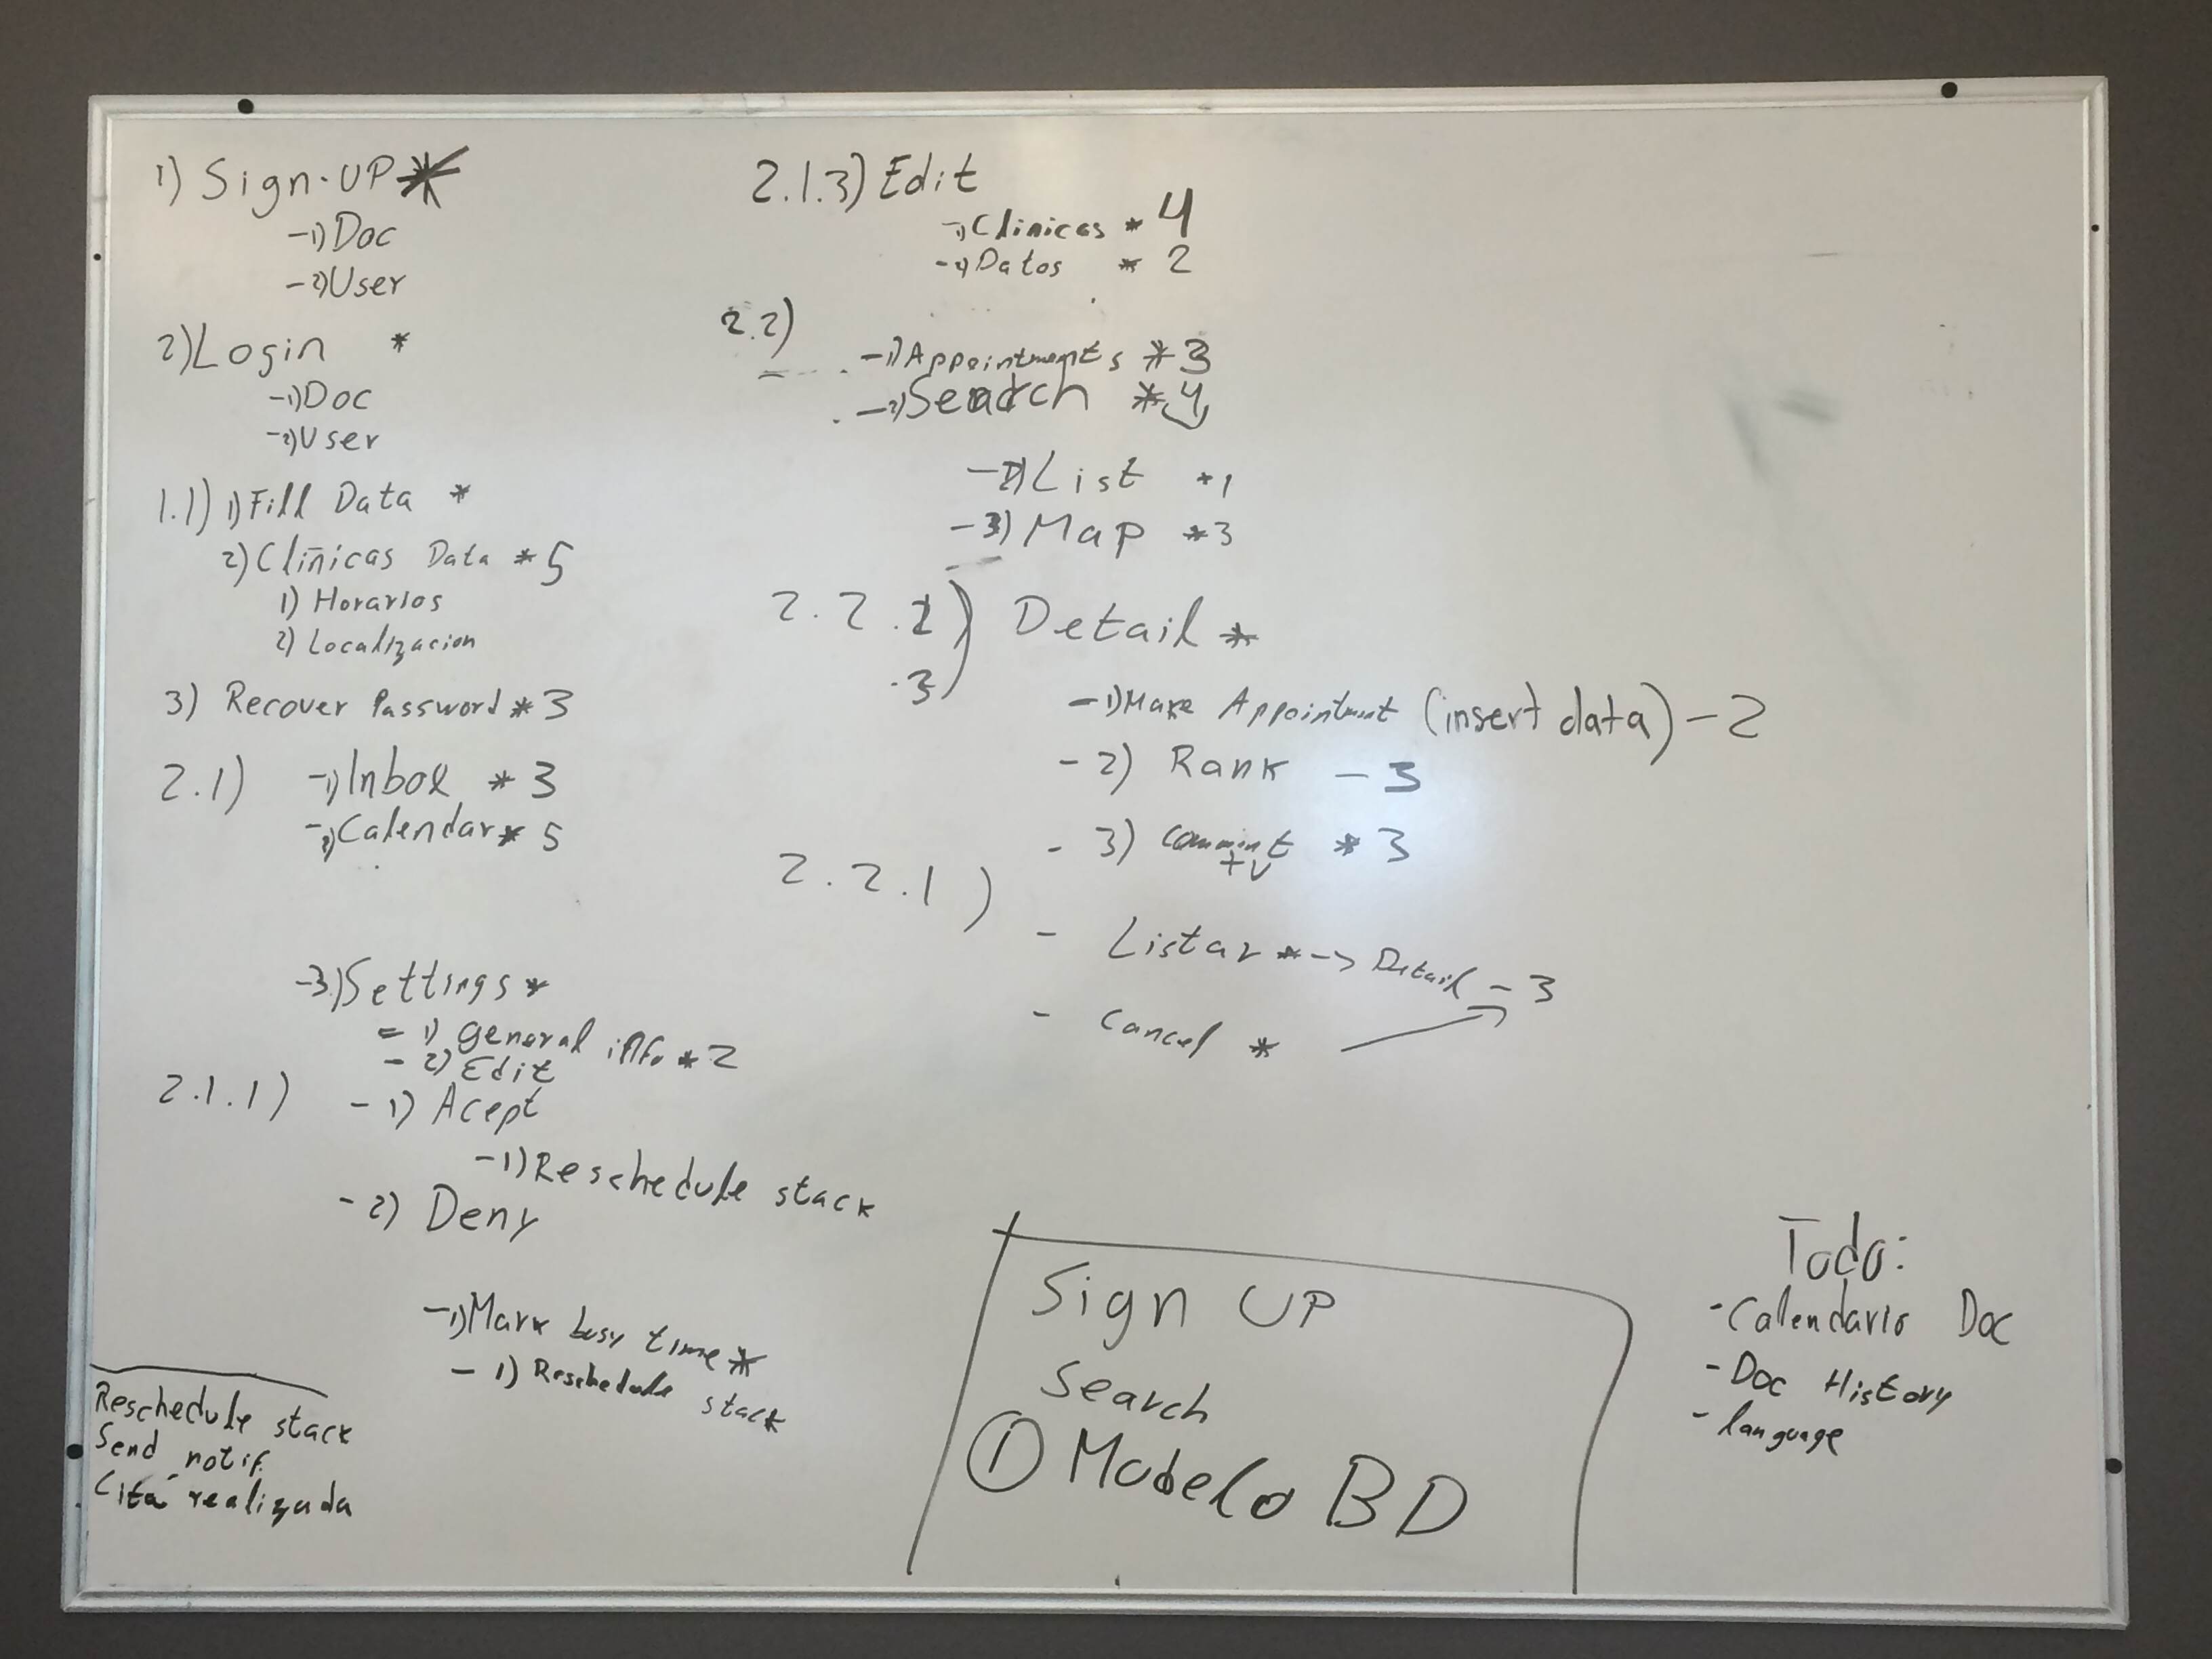 1) Sign-UP *
-1) Doc
-2) User
2) Login *
-1) Doc
-2) User
1.1) 1) Fill Data *
2) Clinicas Data * 5
1) Horarios
2) Localizacion
3) Recover Password * 3
2.1) -1) Inbox * 3
-2) Calendar * 5
-3) Settings *
- 1) general info * 2
- 2) Edit
2.1.1) - 1) Acept
-1) Reschedule stack
- 2) Deny
-1) Mark busy time *
- 1) Reschedule stack
Reschedule stack
Send notif.
Cita realizada
2.1.3) Edit
-1) Clinicas * 4
-2) Datos * 2
2.2)
-1) Appointments * 3
-2) Search * 4
-2) List * 1
-3) Map * 3
2.2.2) Detail *
.3)
-1) Make Appointment (insert data) - 2
- 2) Rank - 3
- 3) comment * 3
2.2.1)
- Listar * -> Detail - 3
- Cancel *
Sign UP
Search
① Modelo BD
Todo:
- Calendario Doc
- Doc History
- language